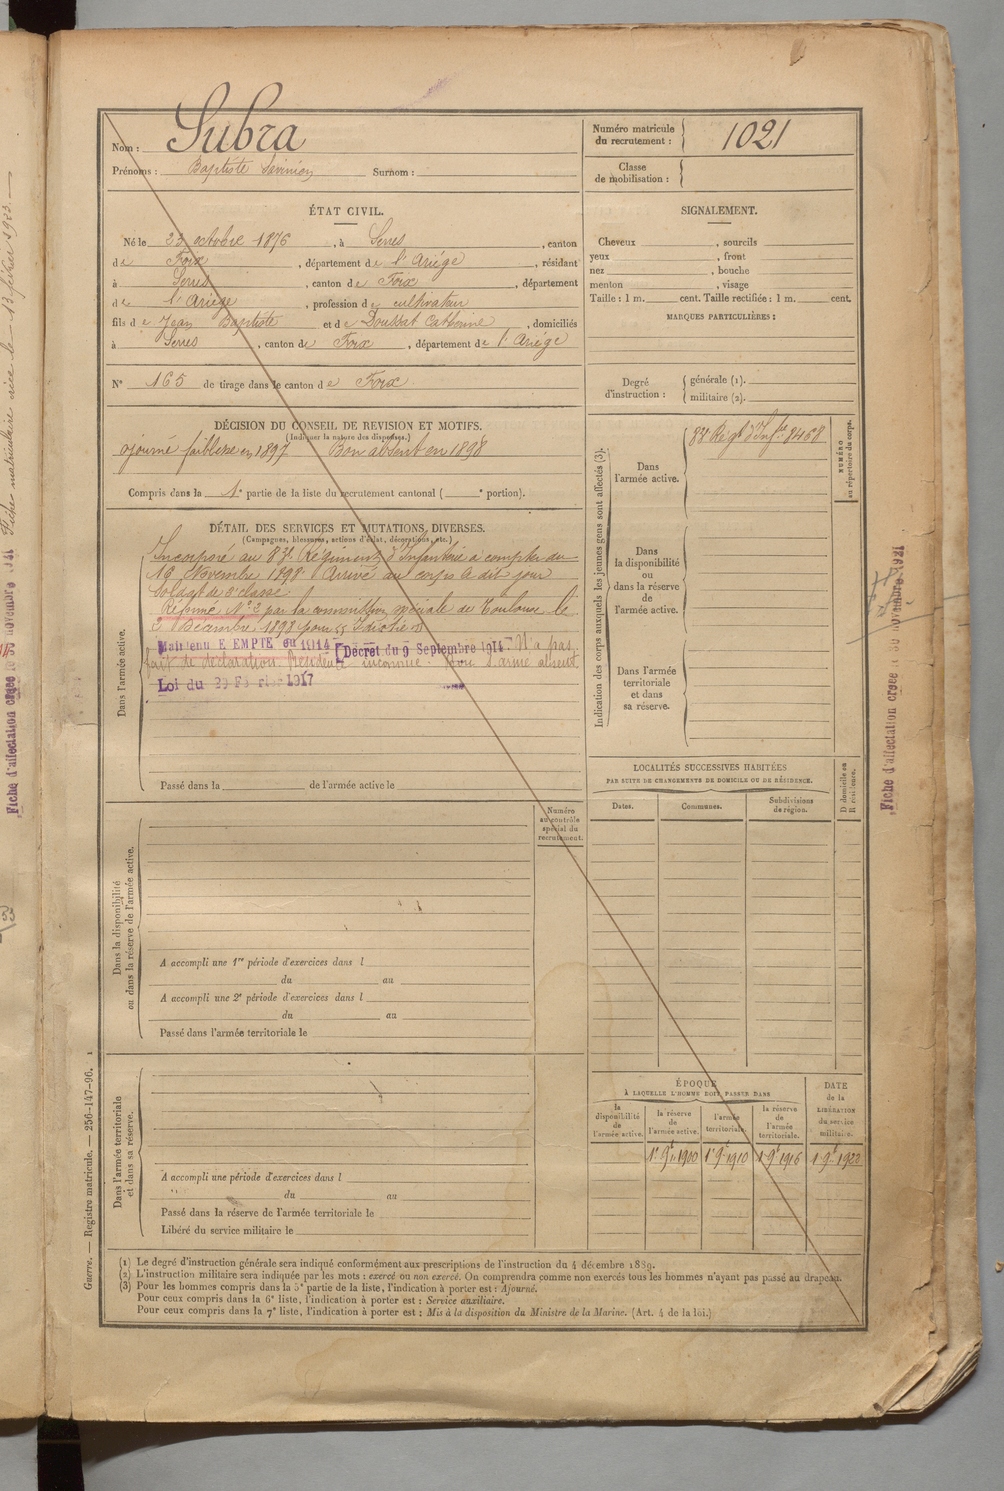 Nom : Subra
Prénoms : Baptiste Surnom :
Numéro matricule du recrutement : 1021
Classe de mobilisation :
ÉTAT CIVIL.
Né le 23 octobre 1876, à Serres, canton
de Foix, département de l'Ariége, résidant
à Serres, canton de Foix, département
de l'Ariége, profession de cultivateur
fils de Jean Baptiste et de Doussat Catherine, domiciliés
à Serres, canton de Foix, département de l'Ariége
N° 165 de tirage dans le canton de Foix.
SIGNALEMENT.
Cheveux , sourcils
yeux , front
nez , bouche
menton , visage
Taille : 1 m. cent. Taille rectifiée : 1 m. cent.
MARQUES PARTICULIÈRES :
Degré d'instruction : générale (1).
militaire (2).
DÉCISION DU CONSEIL DE REVISION ET MOTIFS.
(Indiquer la nature des dispenses.)
ajourné faiblesse en 1897 Bon absent en 1898
Compris dans la 1e partie de la liste du recrutement cantonal ( e portion).
DÉTAIL DES SERVICES ET MUTATIONS DIVERSES.
(Campagnes, blessures, actions d'éclat, décorations, etc.)
Dans l'armée active.
Incorporé au 83e Régiment d'Infanterie à compter du
19 Novembre 1898. Arrivé au corps le dit jour
Soldat de 2e classe
Réformé N° 2 par la commission spéciale de Toulouse le
2 Décembre 1898 pour "Idiotie"
Maintenu EXEMPTÉ ou 1914 [Décret du 9 Septembre 1914. N'a pas
fait de déclaration. Résidence inconnue. absent
Loi du 20 Février 1917
Passé dans la de l'armée active le
Indication des corps auxquels les jeunes gens sont affectés (3).
Dans l'armée active.
83e Régt d'Infie 8458
NUMÉRO au répertoire du corps.
Dans la disponibilité ou dans la réserve de l'armée active.
Dans l'armée territoriale et dans sa réserve.
LOCALITÉS SUCCESSIVES HABITÉES
PAR SUITE DE CHANGEMENTS DE DOMICILE OU DE RÉSIDENCE.
Dates. Communes. Subdivisions de région. D domicile ou R résidence.
Numéro au contrôle spécial du recrutement.
Dans la disponibilité ou dans la réserve de l'armée active.
A accompli une 1re période d'exercices dans l
du au
A accompli une 2e période d'exercices dans l
du au
Passé dans l'armée territoriale le
Dans l'armée territoriale et dans sa réserve.
A accompli une période d'exercices dans l
du au
Passé dans la réserve de l'armée territoriale le
Libéré du service militaire le
ÉPOQUE
À LAQUELLE L'HOMME DOIT PASSER DANS
DATE de la LIBÉRATION du service militaire.
la disponibilité de l'armée active.
la réserve de l'armée active.
l'armée territoriale.
la réserve de l'armée territoriale.
1er 9bre 1900 1er 9bre 1910 1er 9bre 1916 1er 9bre 1922
(1) Le degré d'instruction générale sera indiqué conformément aux prescriptions de l'instruction du 4 décembre 1889.
(2) L'instruction militaire sera indiquée par les mots : exercé ou non exercé. On comprendra comme non exercés tous les hommes n'ayant pas passé au drapeau.
(3) Pour les hommes compris dans la 5e partie de la liste, l'indication à porter est : Ajourné.
Pour ceux compris dans la 6e liste, l'indication à porter est : Service auxiliaire.
Pour ceux compris dans la 7e liste, l'indication à porter est : Mis à la disposition du Ministre de la Marine. (Art. 4 de la loi.)
Guerre. — Registre matricule. — 256-147-96.
Fiche d'affectation créée le 30 novembre 1921
Fiche matriculaire créée le 13 février 1933.
Fiche d'affectation créée le 30 novembre 1921